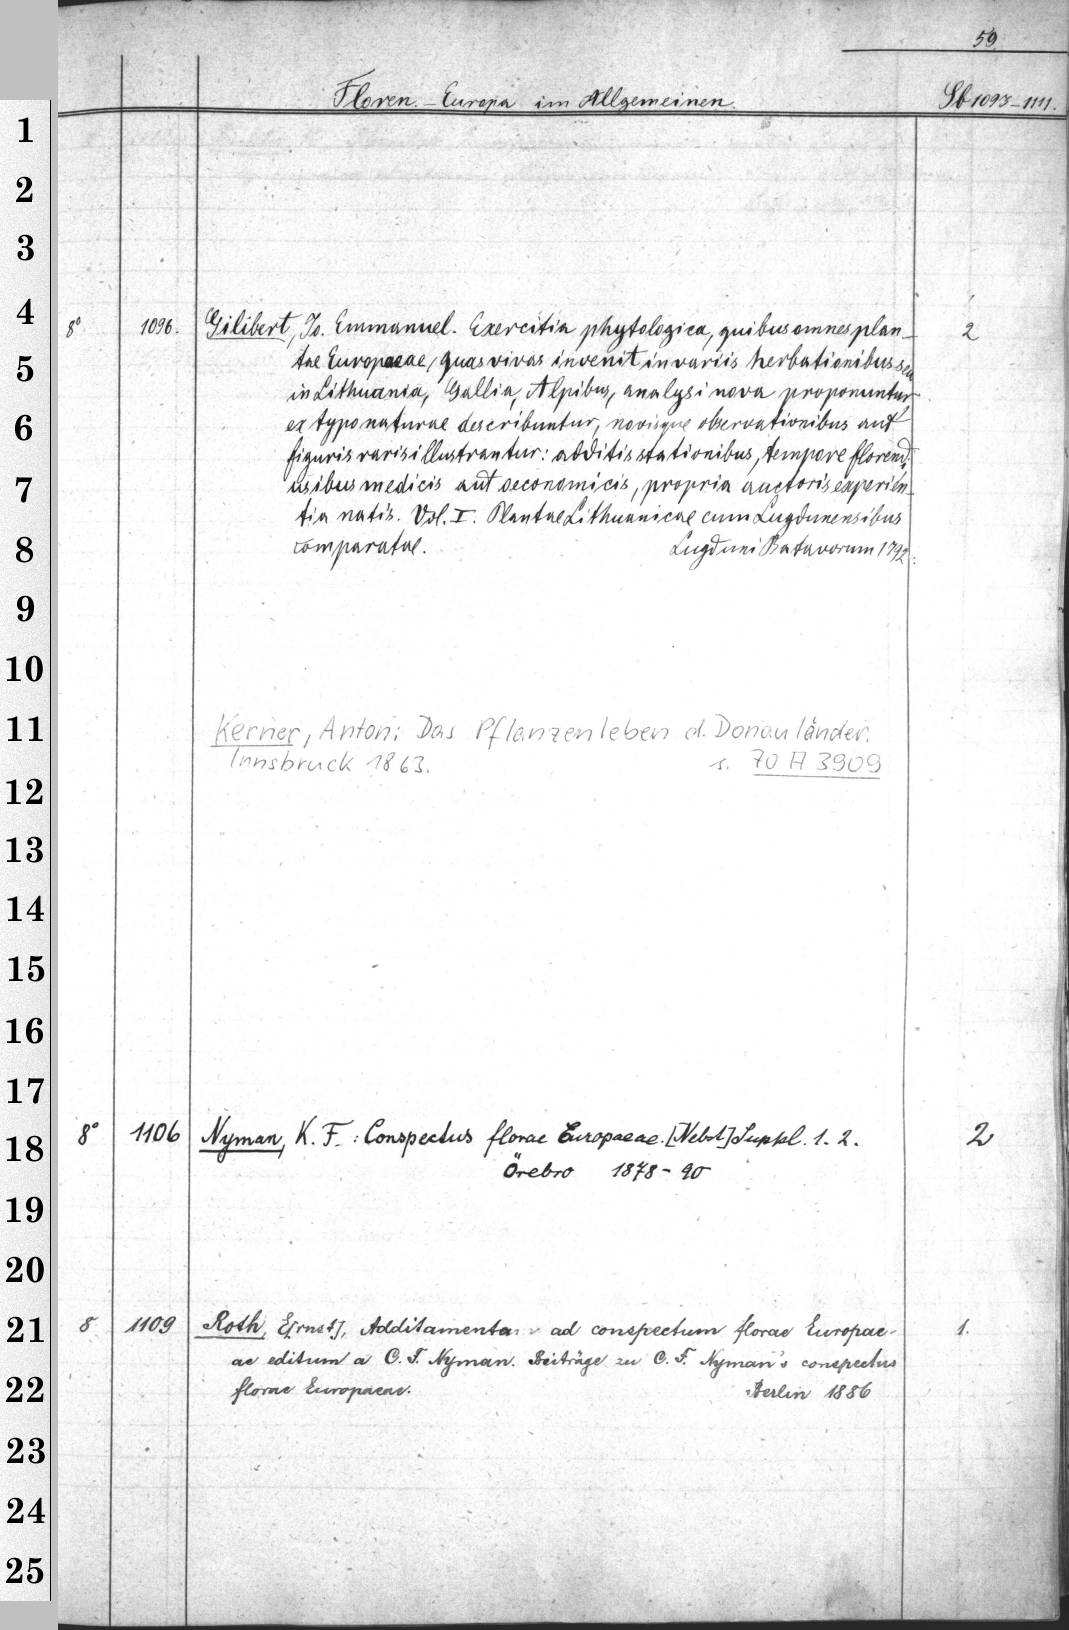 59
Floren. – Europa im Allgemeinen. Sb 1093–1111.
1
2
3
4
5
6
7
8
9
10
11
12
13
14
15
16
17
18
19
20
21
22
23
24
25
8° 1096. Gilibert, Jo. Emmanuel. Exercitia phytologica, quibus omnes plan- 2
tae Europaeae, quas vivas invenit in variis herbationibus seu
in Lithuania, Gallia, Alpibus, analysi nova proponuntur
ex typo naturae describuntur, novisque observationibus aut
figuris raris illustrantur: additis stationibus, tempore florendi
usibus medicis aut oeconomicis, propria auctoris experien-
tia natis. Vol. I. Plantae Lithuanicae cum Lugdunensibus
comparatae. Lugduni Batavorum 1792.
Kerner, Anton: Das Pflanzenleben d. Donauländer.
Innsbruck 1863. s. 70 A 3909
8° 1106 Nyman, K. F.: Conspectus florae Europaeae. [Nebst] Suppl. 1. 2. 2
Örebro 1878-90
8 1109 Roth, E[rnst], Additamenta ad conspectum florae Europae- 1.
ae editum a C. F. Nyman. Beiträge zu C. F. Nyman's conspectus
florae Europaeae. Berlin 1886